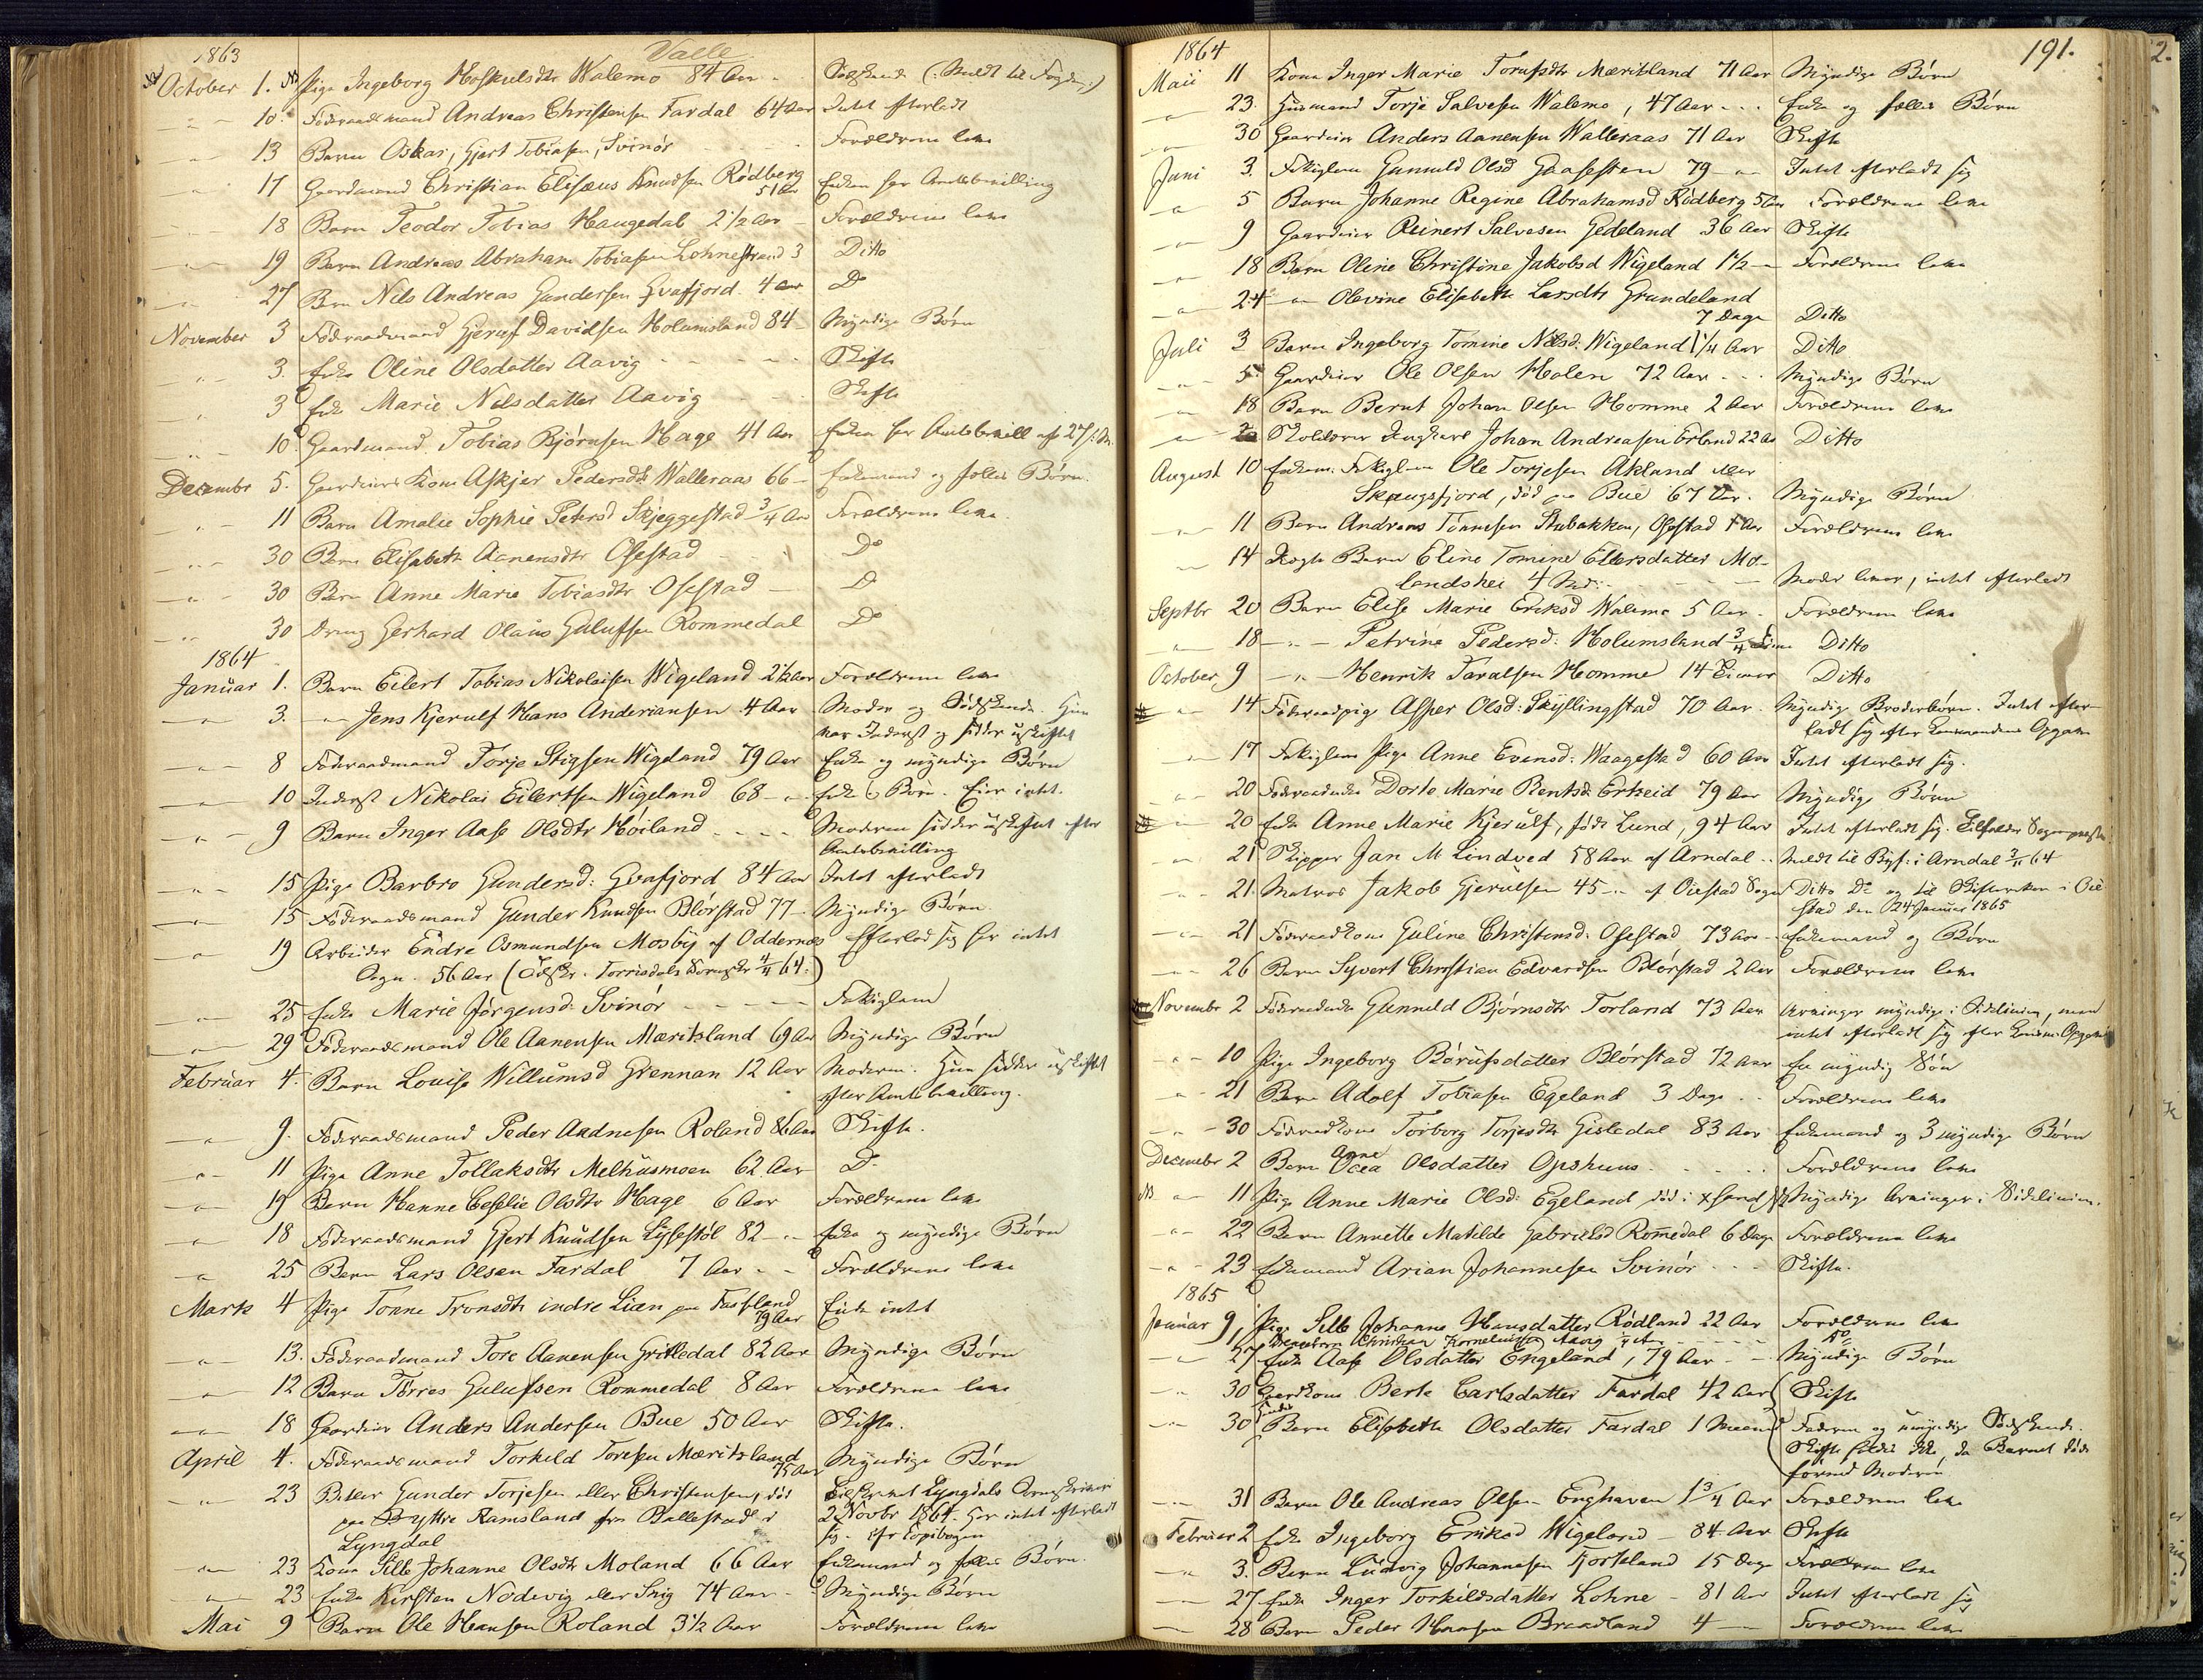 1863
Valle
October 1. Pige Ingeborg Hoskulsdtr Walemo 84 Aar - Sødskende (: Meldt til Fogden :)
10. Føderaadsmand Andreas Christensen Fardal 64 Aar Intet efterladt
13 Barn Oskar, Gjert Tobiasen, Svinør Forældrene leve
17 Gaardmand Christian Elisæus Knudsen Rødberg 51 Aar Enken har Amtsbevilling
18 Barn Teodor Tobias Haugedal 2 1/2 Aar Forældrene leve
19 Barn Andreas Abraham Tobiasen Lohnestrand 3 Ditto
27 Barn Nils Andreas Gundersen Gvafjord 4 Aar Do
November 3 Føderaadmand Gjeruf Davidsen Holumsland 84 - Myndige Børn
3. Enke Oline Olsdatter Aavig Skifte
3 Enke Marie Nilsdatter Aavig Skifte
10 Gaardmand Tobias Bjørnsen Hage 41 Aar Enken har Amtsbevill af 27/
December 5. Gaardeiers Kone Askjer Pedersdtr Walleraas 66 - Enkemand og fælles Børn.
11 Barn Amalie Sophie Petersd Skjeggestad 3/4 Aar Forældrene leve
30 Barn Elisabeth Aanensdtr Osestad Do
30 Barn Anne Marie Tobiasdtr Osestad D
30 Dreng Gerhard Olaus Gulufsen Rommedal Do
1864
Januar 1. Barn Eilert Tobias Nikolaisen Wigeland 2 1/2 Aar Forældrene leve
3. Jens Kjerulf Hans Anderiansen 4 Aar Moder og Sødskende. Hun
var Inderst og sidder uskiftet
8 Føderaadmand Torje Stigsen Wigeland 79 Aar Enke og myndige Børn
10 Inderst Nikolai Eilertsen Wigeland 68 - Enke & Børn. Eier intet.
9 Barn Inger Aase Olsdtr Høiland Moderen sidder uskiftet efter
Amtsbevilling
15 Pige Barbro Gundersd: Gvafjord 84 Aar Intet efterladt
15 Føderaadsmand Gunder Knudsen Blørstad 77 - Myndige Børn.
19 Arbeider Endre Osmundsen Mosby af Oddernæs Efterlod sig her intet
Sogn. 56 Aar (Udskr. Torrisdals Sorenskr 4/4 64:)
25 Enke Marie Jørgensd: Svinør Fattiglem
29 Føderaadsmand Ole Aanensen Mæritsland 69 Aar Myndige Børn
Februar 4. Barn Louise Willumsd Grennan 12 Aar Moderen. Hun sidder uskiftet
efter Amtsbevilling.
9. Føderaadsmand Peder Andnesen Roland 86 Aar Skifte.
11 Pige Anne Tollaksdtr Melhusmoen 62 Aar Do
19 Barn Hanne Ceselie Olsdtr Hage 6 Aar Forældrene leve
18 Føderaadsmand Gjert Knudsen Lyssestøl 82 - Enke og myndige Børn
25 Barn Lars Olsen Fardal 7 Aar Forældrene leve
Marts 4 Pige Tonne Tronsdtr indre Lien paa Fassland 79 Aar Eiede intet
13. Føderaadmand Tore Aanensen Grittedal 82 Aar Myndige Børn
12 Barn Tørres Gulufsen Rommedal 8 Aar Forældrene leve
18 Gaardeier Anders Andersen Bue 50 Aar Skifte.
April 4. Føderaadsmand Torkeld Toresen Mæritsland 75 Aar Myndige Børn
23 Betler Gunder Torjesen eller Christensen, død Tilskrevet Lyngdals Sorenskriver
paa Byttre Ramsland fra Ballestad i 2 Novbr 1864. Har intet efterladt
Lyngdal sig. Efr Copibogen
23 Kone Sille Johanne Olsdtr Moland 66 Aar Enkemand og fælles Børn.
23 Enke Kirsten Nodevig eller Snig 74 Aar Myndige Børn
Mai 9 Barn Ole Hansen Roland 3 1/2 Aar Forældrene leve
1864
191.
Maii 11 Kone Inger Marie Torufsdtr Mæritsland 71 Aar Myndige Børn
23. Husmand Torje Salvesen Walemo, 47 Aar Enke og fælles Børn
30 Gaardeier Anders Aanensen Walleraas 71 Aar Skifte
Juni 3. Fattiglem Gunnuld Olsd Gaaseflen 79 - Intet efterladt sig
5 Barn Johanne Regine Abrahamsd Rødberg 5 Aar Forældrene leve
9 Gaardeier Reinert Salvesen Gedeland 36 Aar Skifte
18 Barn Oline Christine Jakobsd Wigeland 1 1/2 - Forældrene leve
24 Olevine Elisabeth Larsdtr Grundeland
7 Dage Ditto
Juli 3 Barn Ingeborg Tomine Nilsd: Wigeland 1 1/4 Aar Ditto
5 Gaardeier Ole Olsen Holen 72 Aar Myndige Børn
18 Barn Bernt Johan Olsen Homme 2 Aar Forældrene leve
20 Skolelærer Ungkarl Johan Andreasen Erland 22 Aar Ditto
August 10 Enkem. Fattiglem Ole Torjesen Akland eller
Skaugsfjord, død paa Bue 67 Aar. Myndige Børn
11 Barn Andreas Tønnesen Stubakken, Osestad 1 Aar Forældrene leve
14 Uægte Barn Eline Tomine Ellersdatter Mo-
landshei 4 Md: Moder lever, intet efterladt
Septbr 20 Barn Elise Marie Eriksd Walemo 5 Aar Forældrene leve
18 - Petrine Pedersd: Holumsland 3/4 Time Ditto
October 9 - Henrik Taralsen Homme 14 Timer Ditto
14 Føderaadpige Asper Olsd: Skyllingstad 70 Aar. Myndige Broderbørn. Intet efter-
ladt sig efter Lensmandens Opgave
17 Fattiglem Pige Anne Evensd: Waagestad 60 Aar Intet efterladt sig.
20 Føderaadenke Dorte Marie Rentsd: Ertzeid 79 Aar Myndige Børn
20 Enke Anne Marie Kjerulf, født Lund, 94 Aar Intet efterladt sig. Tilfalder Sognepræsten
21 Skipper Jan M Lindved 58 Aar af Arndal Meldt til Byf: i Arndal 3/11 64
21. Matros Jakob Gjerulsen 45 - af Oiestad Sogn Ditto Do og til Skifteretten i Oie
stad den 24 Januar 1865
21 Føderaadkone Guline Christensd: Osestad 73 Aar Enkemand og Børn
26 Barn Syvert Christian Edvardsen Blørstad 2 Aar Forældrene leve
November 2 Føderaadenke Gunnuld Bjørnsdtr Torland 73 Aar Arvinger myndige i Sidelinien, men
intet efterladt sig efter Lensm: Opgave
10 Pige Ingeborg Børufsdatter Blørstad 72 Aar En myndig Søn
21 Barn Adolf Tobiasen Egeland 3 Dage Forældrene leve
30 Føderaadkone Torborg Torjesdtr Gisledal 83 Aar Enkemand og 3 myndige Børn
December 2 Barn Anne Ocea Olsdatter Opshuus Forældrene leve
11 Pige Anne Marie Olsd: Egeland død i Xsand Myndige Arvinger i Sidelinien.
22 Barn Annette Matilde Gabrielsd Romedal 6 Dage Forældrene leve
23 Enkemand Arian Johannesen Svinør Skifte.
1865
Januar 9, Pige Sille Johanne Hansdatter Rødland 22 Aar Forældrene leve
Drengbarn Christian Kornelius Aavig Do
27 Enke Aase Olsdatter Engeland, 79 Aar Myndige Børn
30 Gaardkone Berte Carlsdatter Fardal 42 Aar Skifte
30 Hendes Barn Elisabeth Olsdatter Fardal 1 Maaned Faderen og umyndige Sødskende.
Skifte holdes ikke, da Barnet døde
førend Moderen
31 Barn Ole Andreas Olsen Enghaven 1 3/4 Aar Forældrene leve
Februar 2 Enke Ingeborg Eriksd Wigeland - 84 Aar Skifte
3. Barn Ludvig Johannesen Fjorkeland 15 Dage Forældrene leve
27 Enke Inger Torkildsdatter Lohne - 81 Aar Intet efterladt sig
28 Barn Peder Hansen Breadland 4 - Forældrene leve